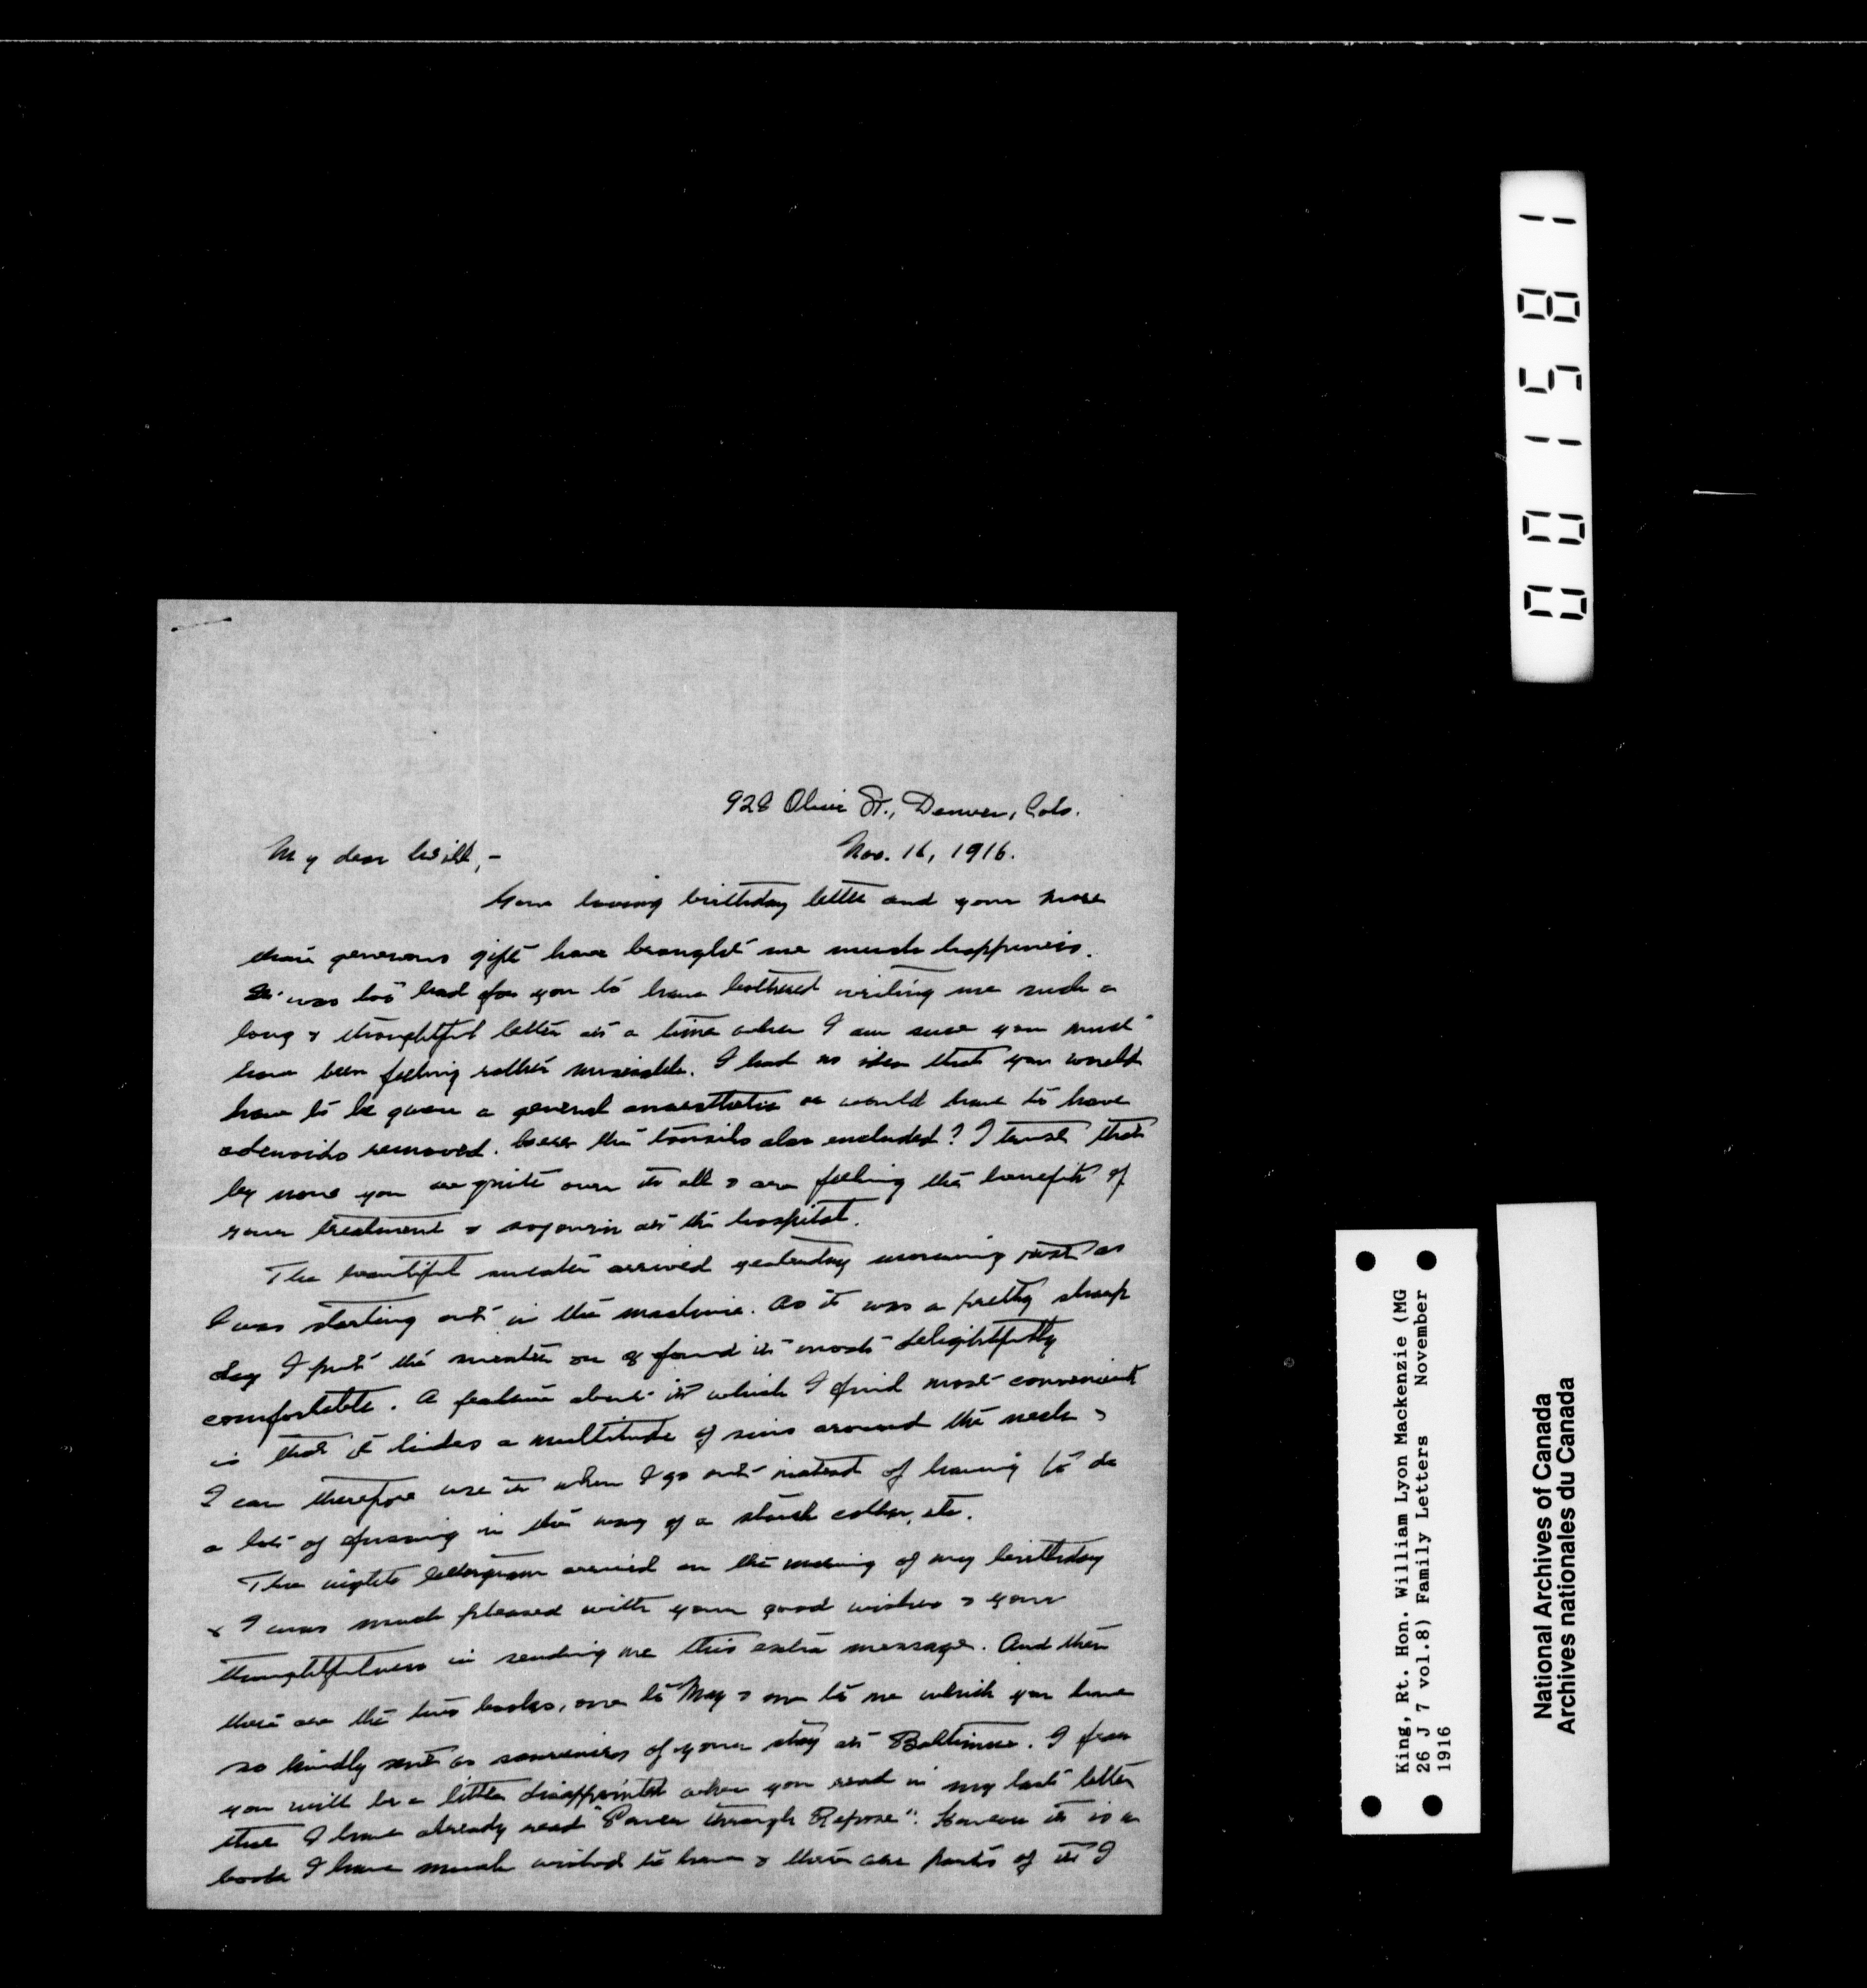 928 Olive St., Denver, Colo.
Nov. 16, 1916.
My dear Will,-
Your loving birthday letter and your more
than generous gift have brought me much happiness.
It was too bad for you to have bothered writing me such a
long & thoughtful letter at a time when I am sure you must
have been feeling rather miserable. I had no idea that you would
have to be given a general anaesthetic or would have to have
adenoids removed. Were the tonsils also included? I trust that
by now you are quite over it all & are feeling the benefit of
your treatment & sojourn at the hospital.
The beautiful sweater arrived yesterday morning just as
I was starting out in the machine. As it was a pretty sharp
day I put the sweater on & found it most delightfully
comfortable. A feature about it which I find most convenient
is that it hides a multitude of sins around the neck &
I can therefore use it when I go out instead of having to do
a lot of fussing in the way of a starch collar, etc.
The night lettergram arrived on the morning of my birthday
& I was much pleased with your good wishes & your
thoughtfulness in sending me this extra message. And then
there are the two books, one to May & one to me which you have
so kindly sent as souvenirs of your stay at Baltimore. I fear
you will be a little disappointed when you read in my last letter
that I have already read "Power through Repose". However it is a
book I have much wished to have & there are parts of it I
0 0 1 5 8 1
King, Rt. Hon. William Lyon Mackenzie (MG
26 J 7 vol.8) Family Letters November
1916
National Archives of Canada
Archives nationales du Canada